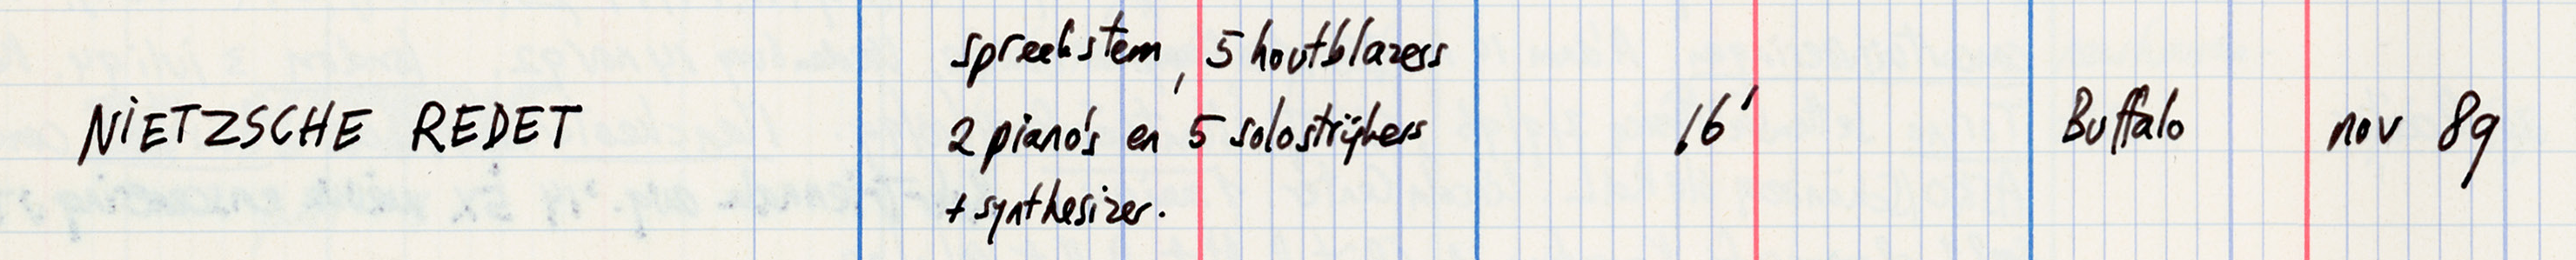 spreekstem, 5 houtblazers
NIETZSCHE REDET 2 piano's en 5 solostrijkers 16' Buffalo nov 89
+ synthesizer.